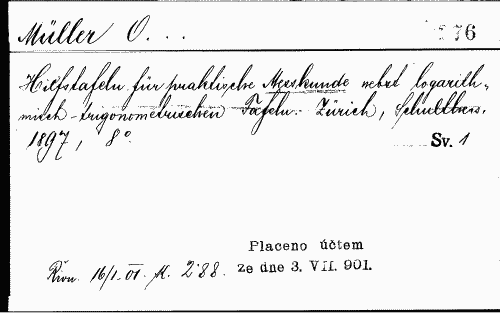 Müller O. . . 76
Hilfstafeln für praktische Messkunde nebst logarith-
misch-trigonometrischen Tafeln. Zürich, Schulthess.
1897, 8°
Sv. 1
Placeno účtem
16/I. 01. K. 2·88. ze dne 3. VII. 901.